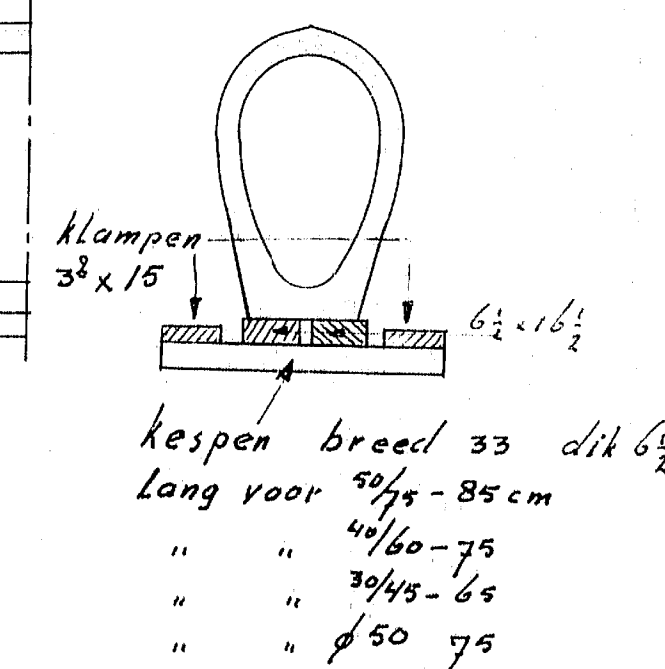 klampen
3⁸ x 15
6½ x 16½
kespen breed 33 dik 6½
Lang voor 50/75 - 85 cm
" " 40/60 - 75
" " 30/45 - 65
" " ϕ 50 75